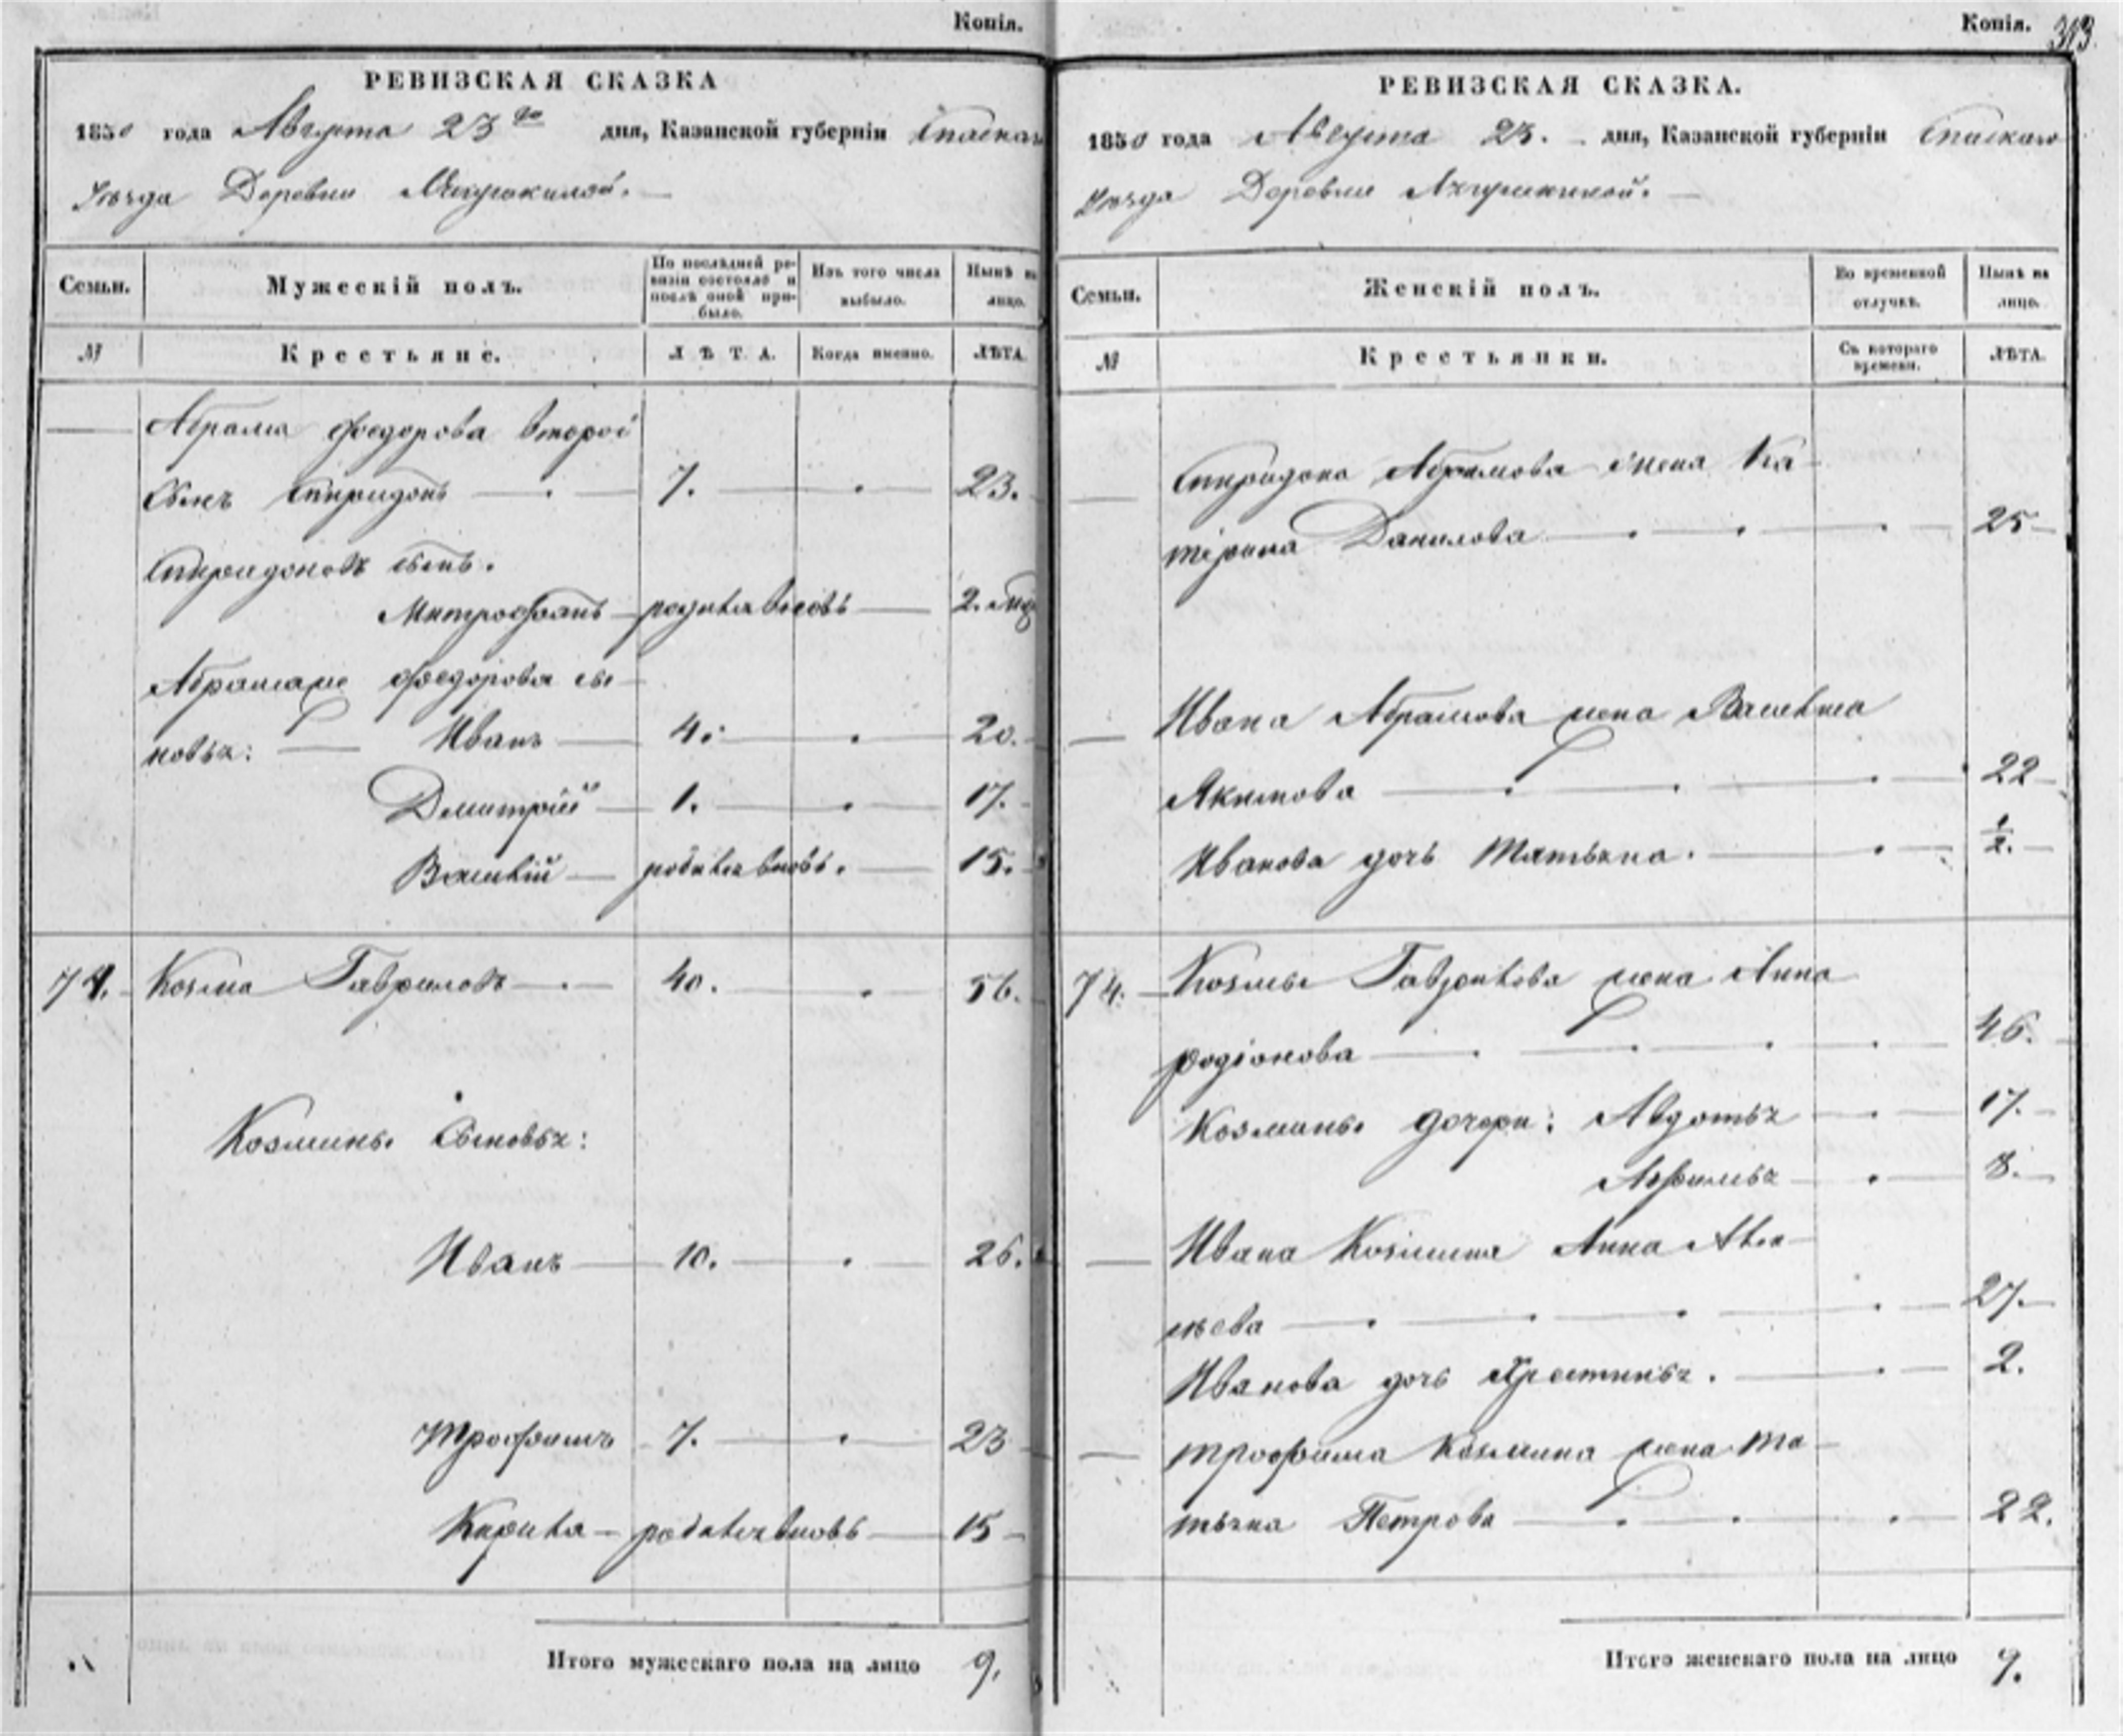 Копія.
РЕВИЗСКАЯ СКАЗКА
1850 года Августа 23го дня, Казанской губерніи Спаскаго
Уѣзда Деревни
Семьи.
Мужескій полъ.
По послѣдней ре-
визіи состояло и
послѣ оной при-
было.
Изъ того числа
выбыло.
Нынѣ на
лицо.
№
Крестьяне.
ЛѢТА.
Когда именно.
ЛѢТА.
Абрама Федорова второй
сынъ Спиридонъ 7. 23.
Спиридоновъ сынъ.
Митрофанъ родился вновь 2. мѣс
Федорова сы-
новья: Иванъ 4. 20.
Дмитрій 1. 17.
Василій родился вновь. 15.
74. Козма Гавриловъ 40. 56.
Козмины Сыновья:
Иванъ 10. 26.
Трофимъ 7. 23
Кирила родился вновь 15
Итого мужескаго пола на лицо 9.
Копія. 313
РЕВИЗСКАЯ СКАЗКА.
1850 года Августа 23. дня, Казанской губерніи Спаскаго
Уѣзда Деревни
Семьи.
Женскій полъ.
Во временной
отлучкѣ.
Нынѣ на
лицо.
№
Крестьянки.
Съ котораго
времени.
ЛѢТА.
Спиридона Абрамова жена Ка-
терина Данилова 25
Ивана Абрамова жена Василиса
Акимова 22
Иванова дочь Татьяна. 1/2.
74. Козмы Гаврилова жена Анна
Родіонова 46.
Козмины дочери: Авдотья 17.
Афимья 8.
Ивана Козмина Анна Авек-
сѣева 27.
Иванова дочь Хрестинья. 2.
Трофима Козмина жена Та-
тьяна Петрова 22.
Итого женскаго пола на лицо 9.